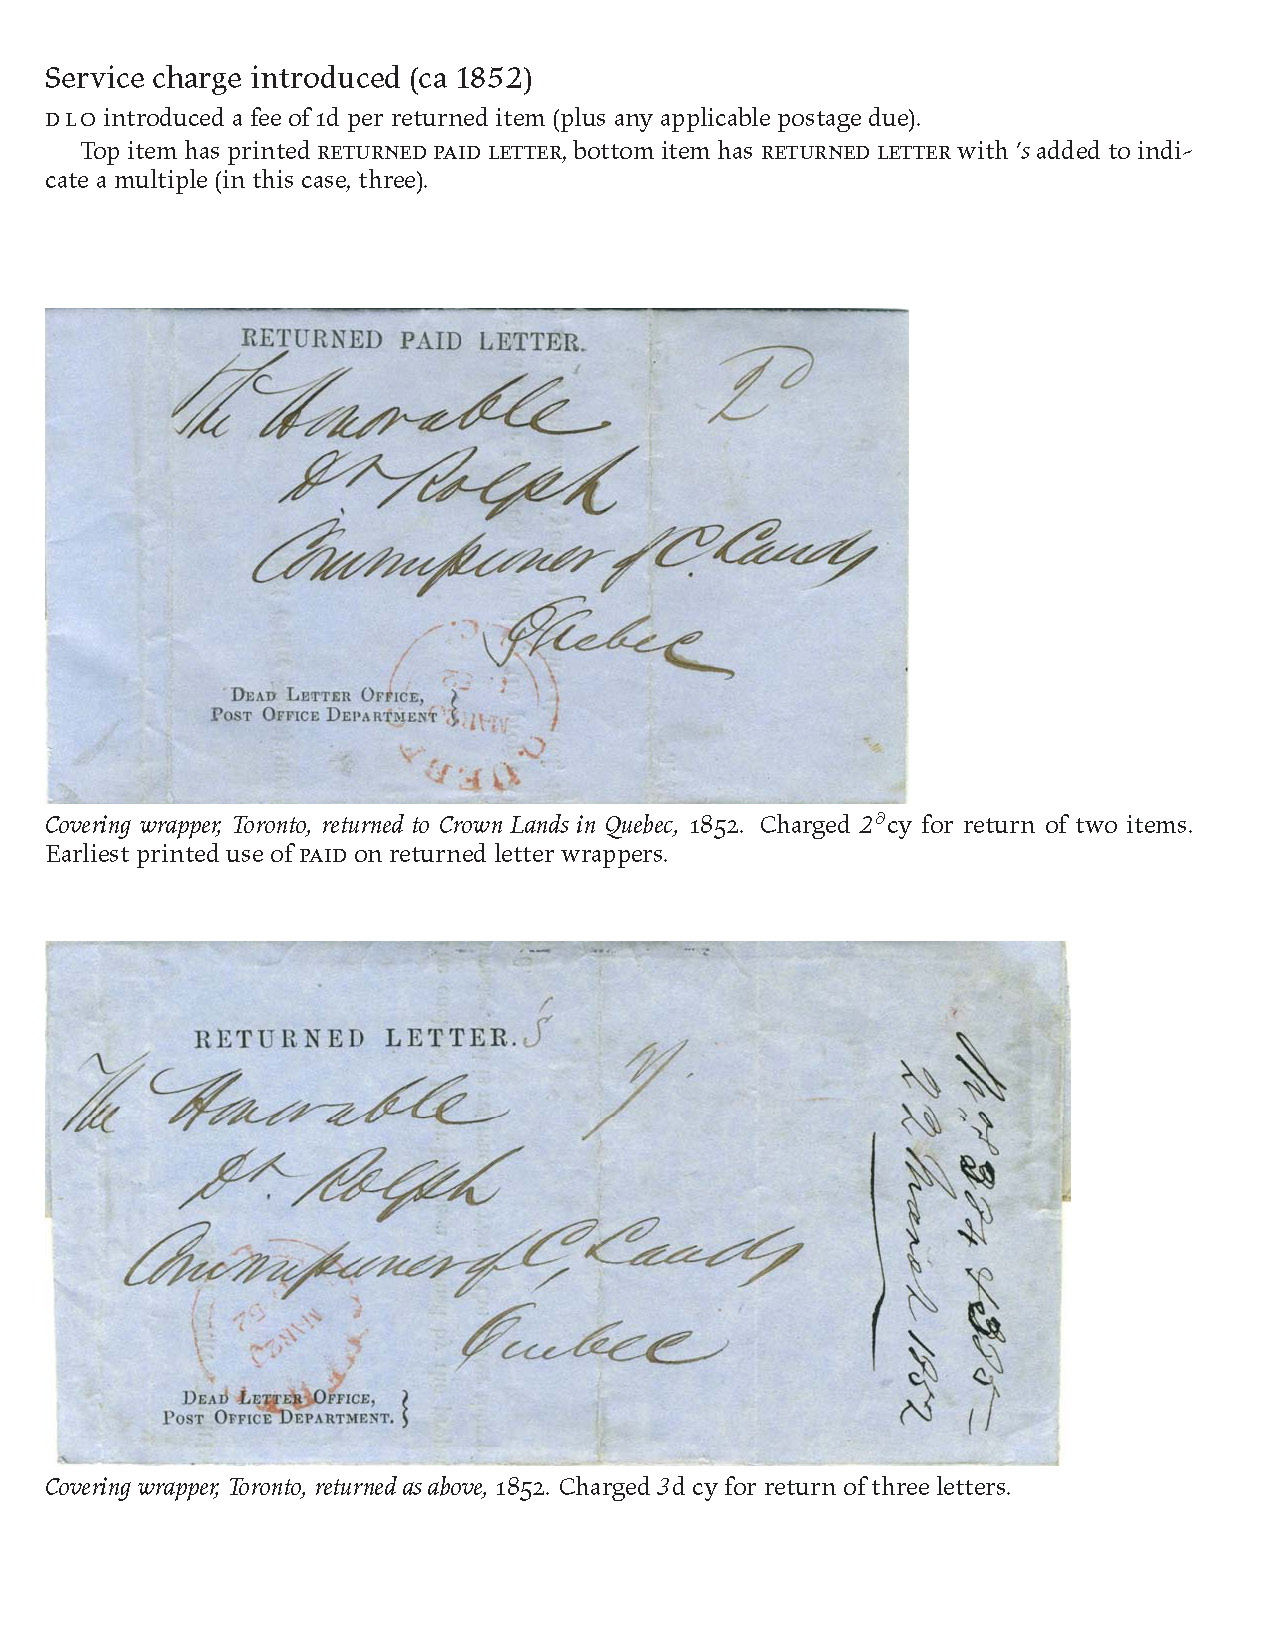 Service charge introduced (ca 1852)
DLO introduced a fee of 1d per returned item (plus any applicable postage due).
Top item has printed RETURNED PAID LETTER, bottom item has RETURNED LETTER with ’s added to indi-
cate a multiple (in this case, three).
RETURNED PAID LETTER.
2ᵈ
The Honorable
Dr Rolph
Commissioner of C. Lands
Quebec
DEAD LETTER OFFICE,
POST OFFICE DEPARTMENT
Covering wrapper, Toronto, returned to Crown Lands in Quebec, 1852. Charged 2ᵈcy for return of two items.
Earliest printed use of PAID on returned letter wrappers.
RETURNED LETTER.'s
The Honorable
Dr. Rolph
Commissioner of C, Lands
Quebec
22 March 1852
MAR
52
DEAD LETTER OFFICE,
POST OFFICE DEPARTMENT.
Covering wrapper, Toronto, returned as above, 1852. Charged 3d cy for return of three letters.